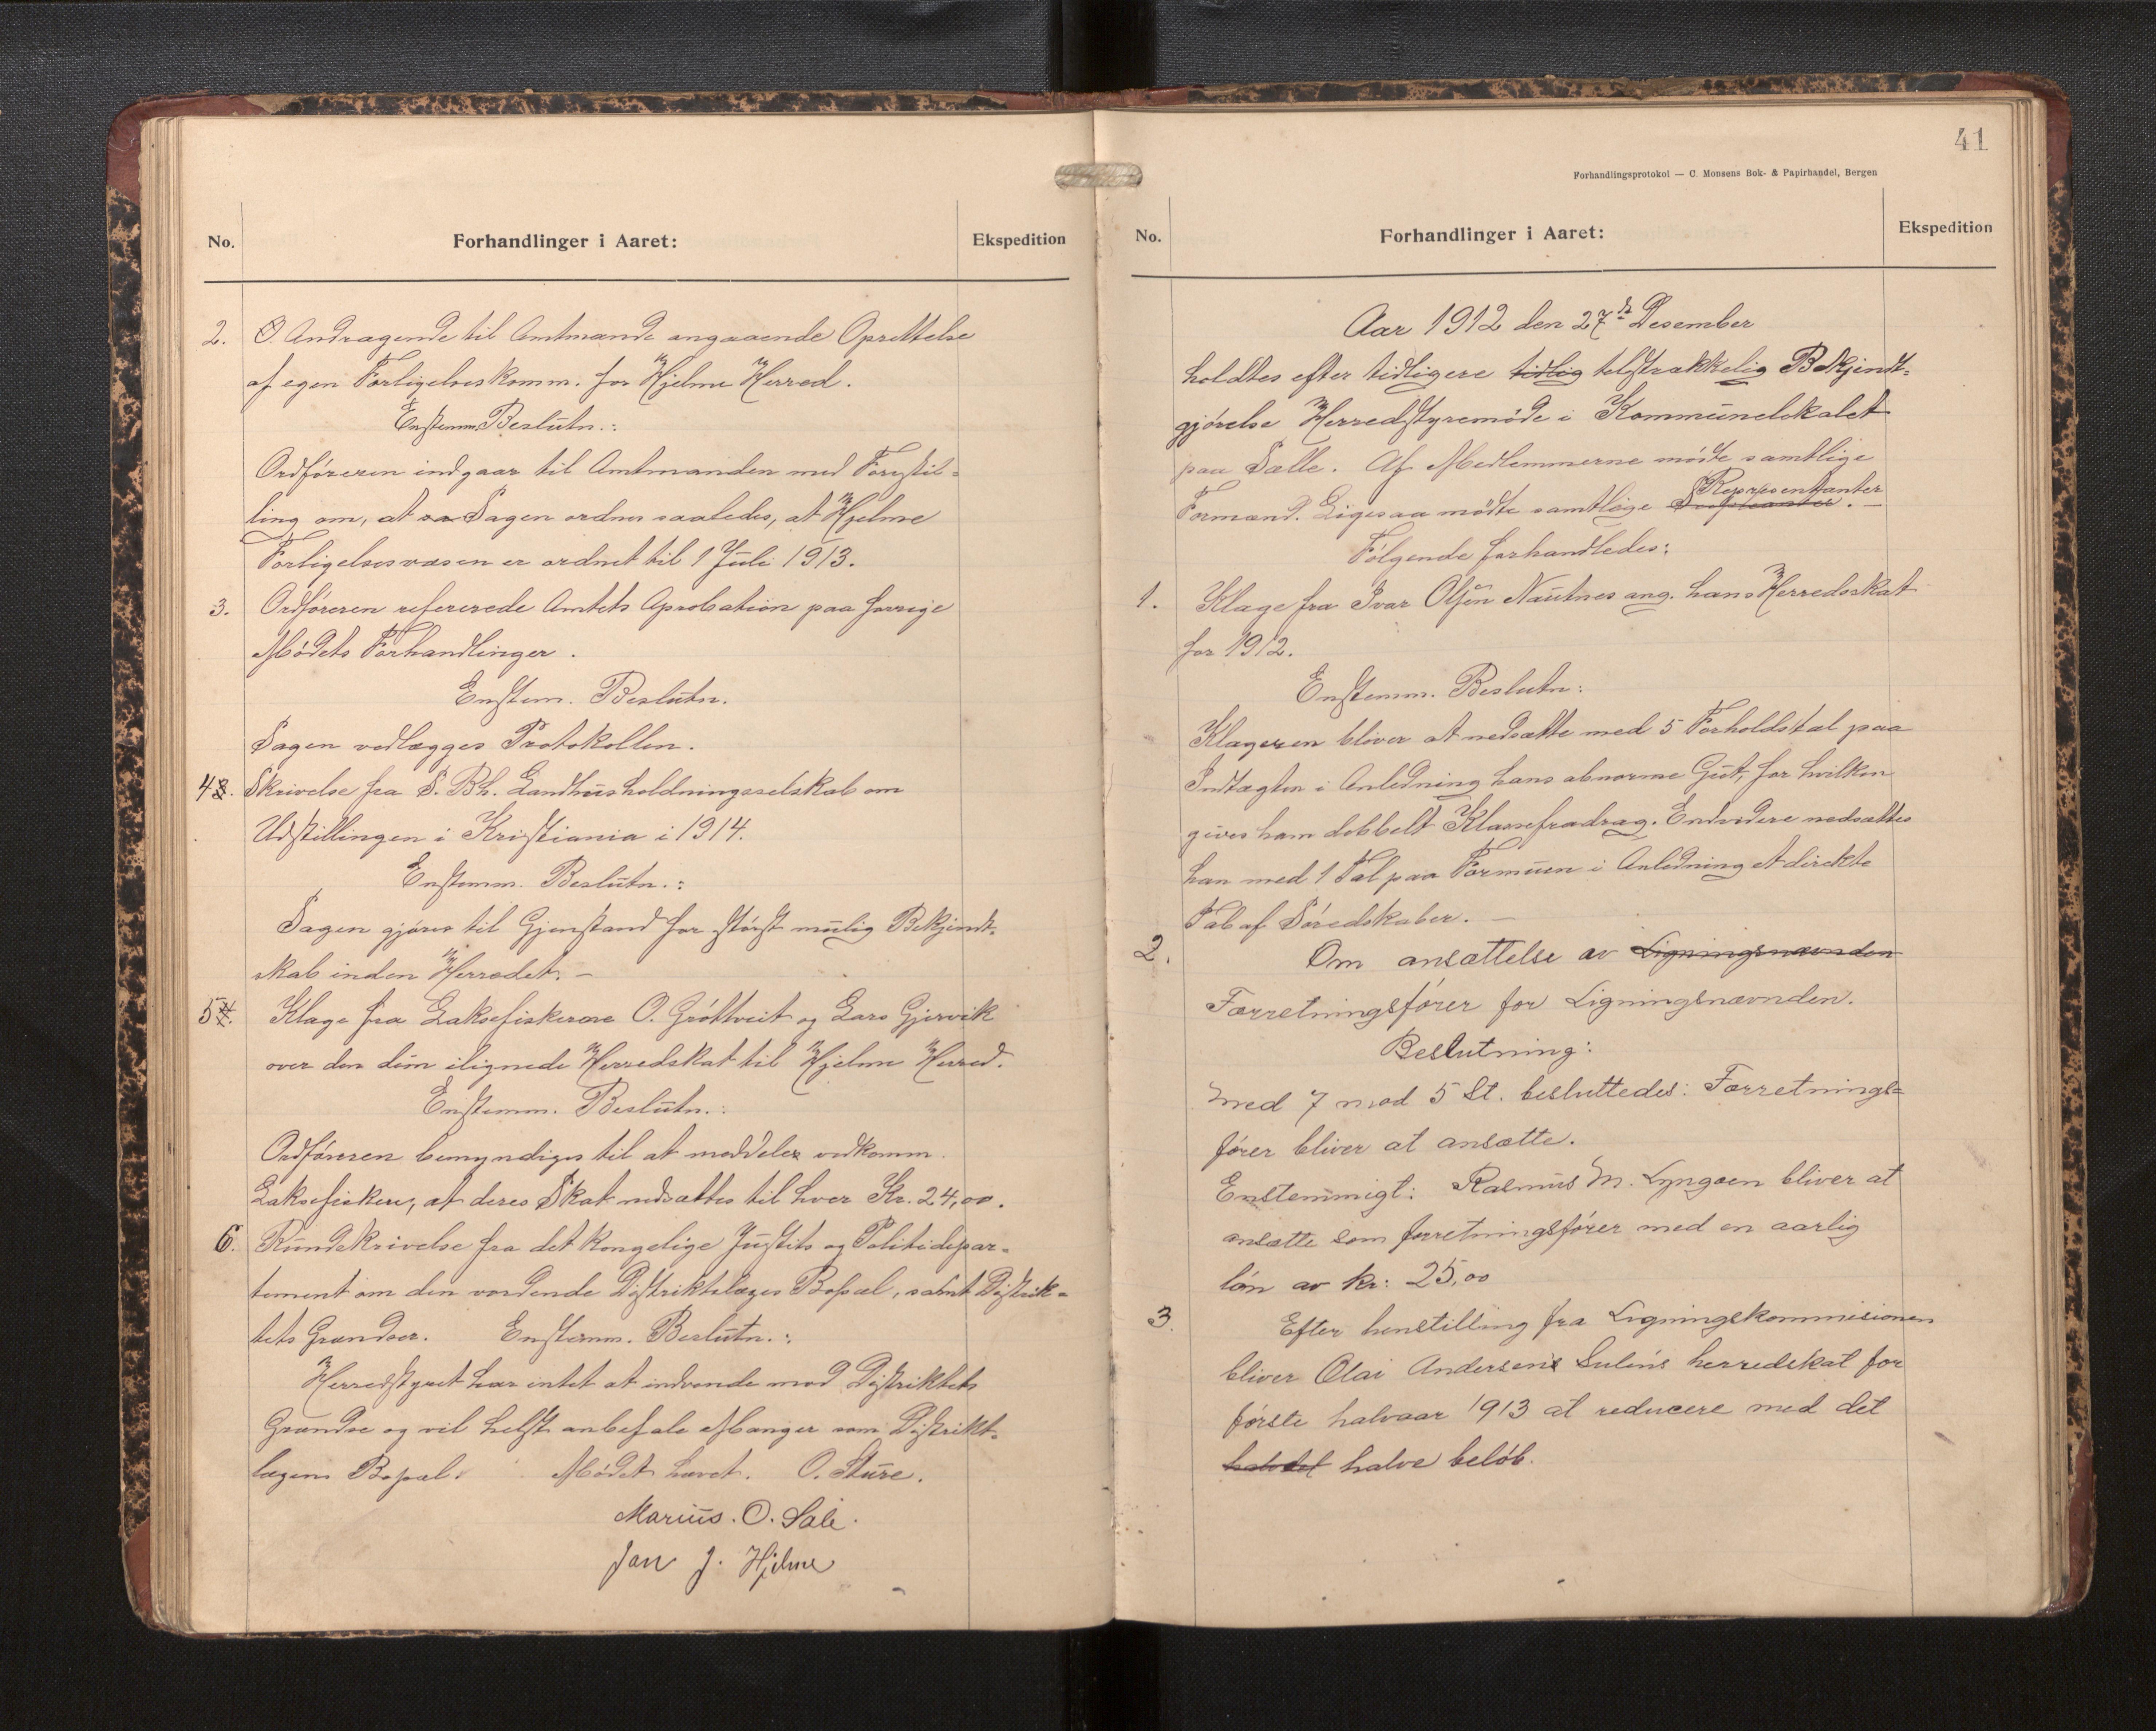 No.
Forhandlinger i Aaret:
Ekspedition
2. Andragende til Amtmande angaaende Oprettelse
af egen Forligelseskomm. for Hjelme Herred.
Enstemm. Beslutn.:
Ordføreren indgaar til Amtmanden med Forestil-
ling om, at Sagen ordnes saaledes, at Hjelme
Forligelsesvæsen er ordnet til 1 Juli 1913.
3. Ordføreren refererede Amtets Aprobation paa forrige
Mødets Forhandlinger.
Enstem. Beslutn.
Sagen vedlægges Protokollen.
4. Skrivelse fra S. Bh. Landhusholdningsselskab om
Udstillingen i Kristiania i 1914.
Enstemm. Beslutn.:
Sagen gjøres til Gjenstand for størst mulig Bekjendt-
skab inden Herredet. –
5. Klage fra Laksefiskerne O. Grøttveit og Lars Gjervik
over den dem ilignede Herredskat til Hjelme Herred.
Enstemm. Beslutn.:
Ordføreren bemyndiges til at meddele vedkomm.
Laksefiskere, at deres Skat nedsættes til hver Kr. 24,00.
6. Rundskrivelse fra det kongelige Justits og Politidepar-
tement om den vordende Distriktslæges Bopæl, samt Distrik-
tets Grændser. Enstemm. Beslutn.:
Herredstyret har intet at indvende mod Distriktets
Grændse og vil helst anbefale Manger som Distrikt-
lægens Bopæl. Mødet hævet. O. Sture.
Marius. O. Sæle.
Jan J. Hjelme
41
Forhandlingsprotokol — C. Monsens Bok- & Papirhandel, Bergen
No.
Forhandlinger i Aaret:
Ekspedition
Aar 1912 den 27de Desember
holdtes efter tidligere tidlig telstrækkelig Bekjendt-
gjørelse Herredstyremøde i Kommunelokalet
paa Sælle. Af Medlemmerne mødte samtlige
Representanter
Formænd. Ligesaa mødte samtlige
Følgende forhandledes:
1. Klage fra Ivar Olsen Nautnes ang. hans Herredsskat
for 1912.
Enstemm. Beslutn:
Klageren bliver at nedsætte med 5 Forholdstal paa
Indtægten i Anledning hans abnorme Gut, for hvilken
gives ham dobbelt Klassefradrag. Endvidere nedsættes
han med 1 Tal paa Formuen i Anledning et direkte
Tab af Søredskaber. –
2. Om ansættelse av Ligningsnævnden
Forretningsfører for Ligningsnævnden.
Beslutning:
Med 7 mod 5 St. besluttedes: Forretnings=
fører bliver at ansætte.
Enstemmigt: Rasmus M. Lyngøen bliver at
ansætte som forretningsfører med en aarlig
løn av kr: 25,00
3. Efter henstilling fra Ligningskommisionen
bliver Olai Andersens Sulens herredskat for
første halvaar 1913 at reducere med det
halvdel halve beløb.